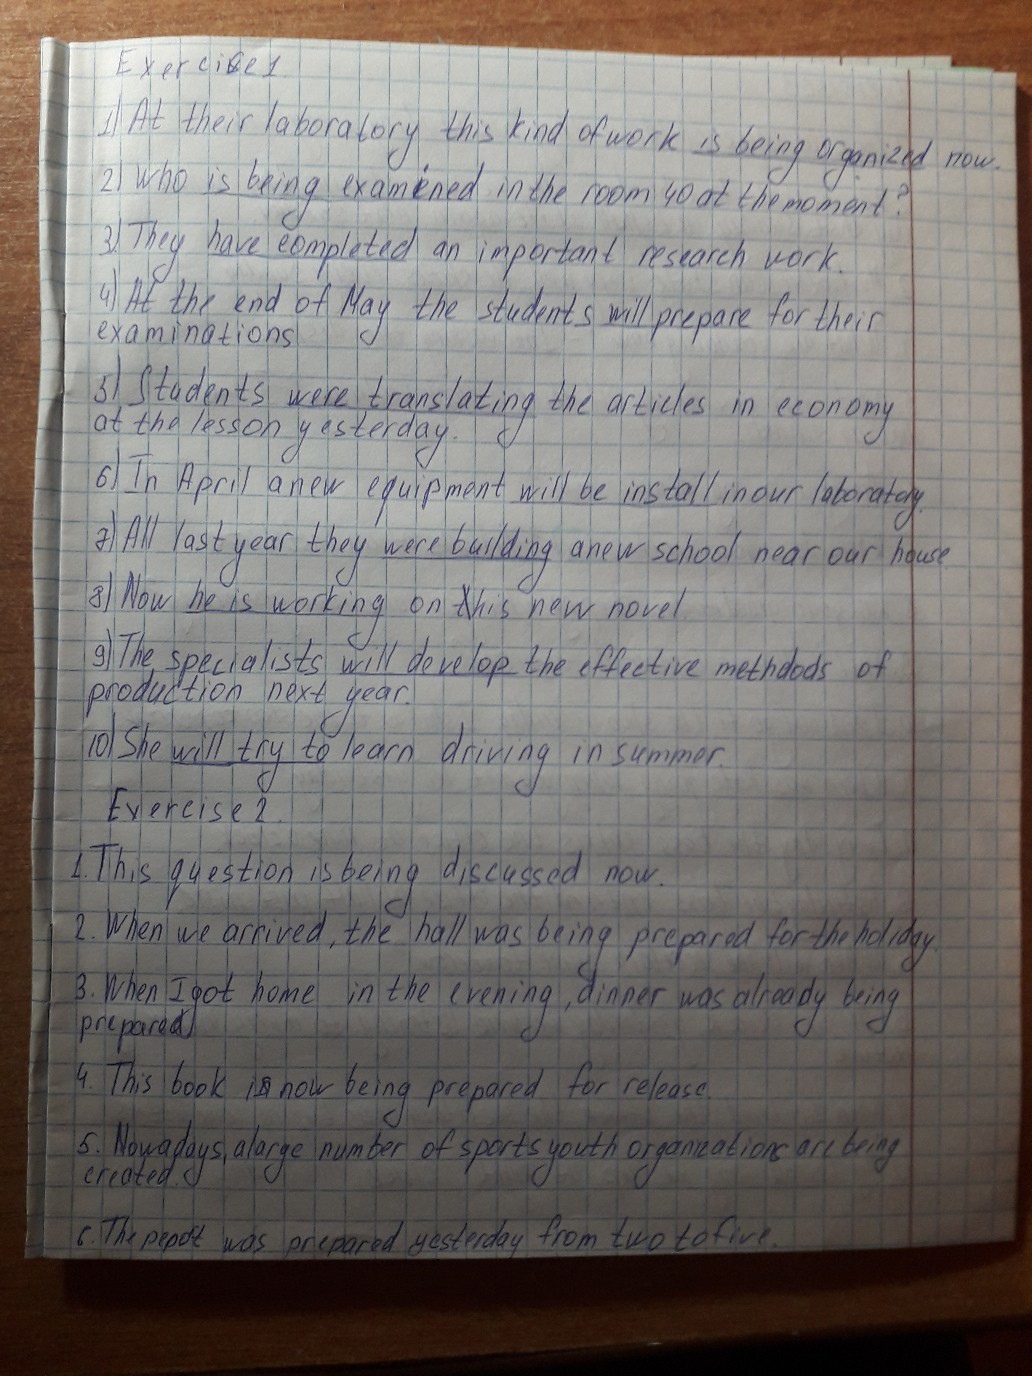 Exercise 1
1) At their laboratory this kind of work is being organized now.
2) Who is being examined in the room 40 at the moment?
3) They have completed an important research work.
4) At the end of May the students will prepare for their
examinations
5) Students were translating the articles in economy
at the lesson yesterday.
6) In April a new equipment will be install in our laboratory.
7) All last year they were building a new school near our house
8) Now he is working on this new novel
9) The specialists will develop the effective methdods of
production next year.
10) She will try to learn driving in summer.
Exercise 2.
1. This question is being discussed now.
2. When we arrived, the hall was being prepared for the holiday.
3. When I got home in the evening, dinner was already being
prepared
4. This book is now being prepared for release.
5. Nowadays, a large number of sports youth organizations are being
created.
6. The pepoт was prepared yesterday from two to five.